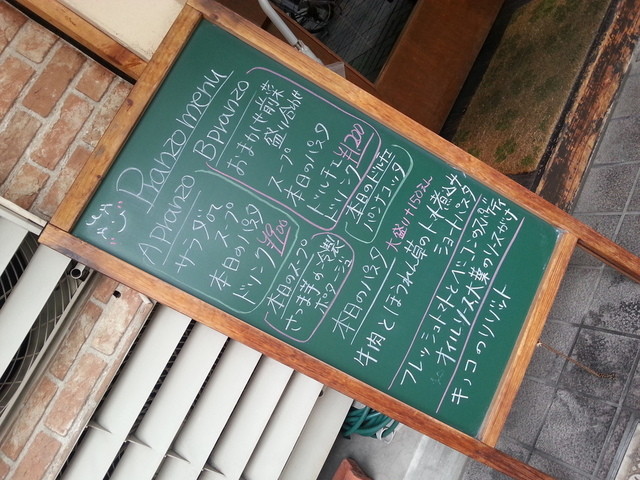 Pranzo menu
A pranzo
サラダ or スープ
本日のパスタ
ドリンク ¥900
B pranzo
おまかせ前菜
盛り合わせ
スープ
本日のパスタ
ドルチェ
ドリンク ¥1200
本日のスープ
さつま芋の冷製
ポタージュ
本日のドルチェ
パンナコッタ
本日のパスタ 大盛り+150えん
牛肉とほうれん草のトマト煮込み
ショートパスタ
フレッシュトマトとベーコンのスパゲッティ
オイルソース水菜のソースがけ
キノコのリゾット